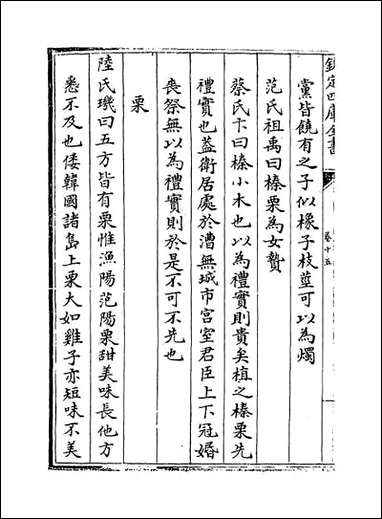 欽定四庫全書
卷十五
黨皆饒有之子似橡子枝莖可以為燭
范氏祖禹曰榛栗為女贄
蔡氏卞曰榛小木也以為禮實則貴矣植之榛栗先
禮實也蓋衛居處於漕無城市宮室君臣上下冠婚
喪祭無以為禮實則於是不可不先也
栗
陸氏璣曰五方皆有栗惟漁陽范陽栗甜美味長他方
悉不及也倭韓國諸島上栗大如雞子亦短味不美